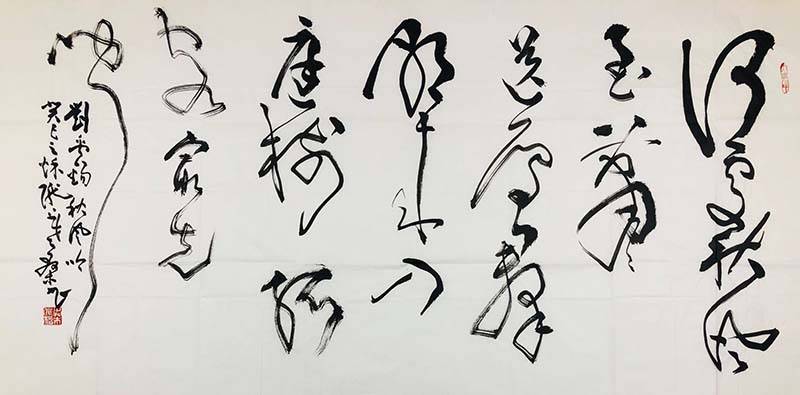 何處秋風
至蕭蕭
送雁群
朝来入
庭樹孤
客最先
聞
劉禹錫秋風吟
癸巳之秋